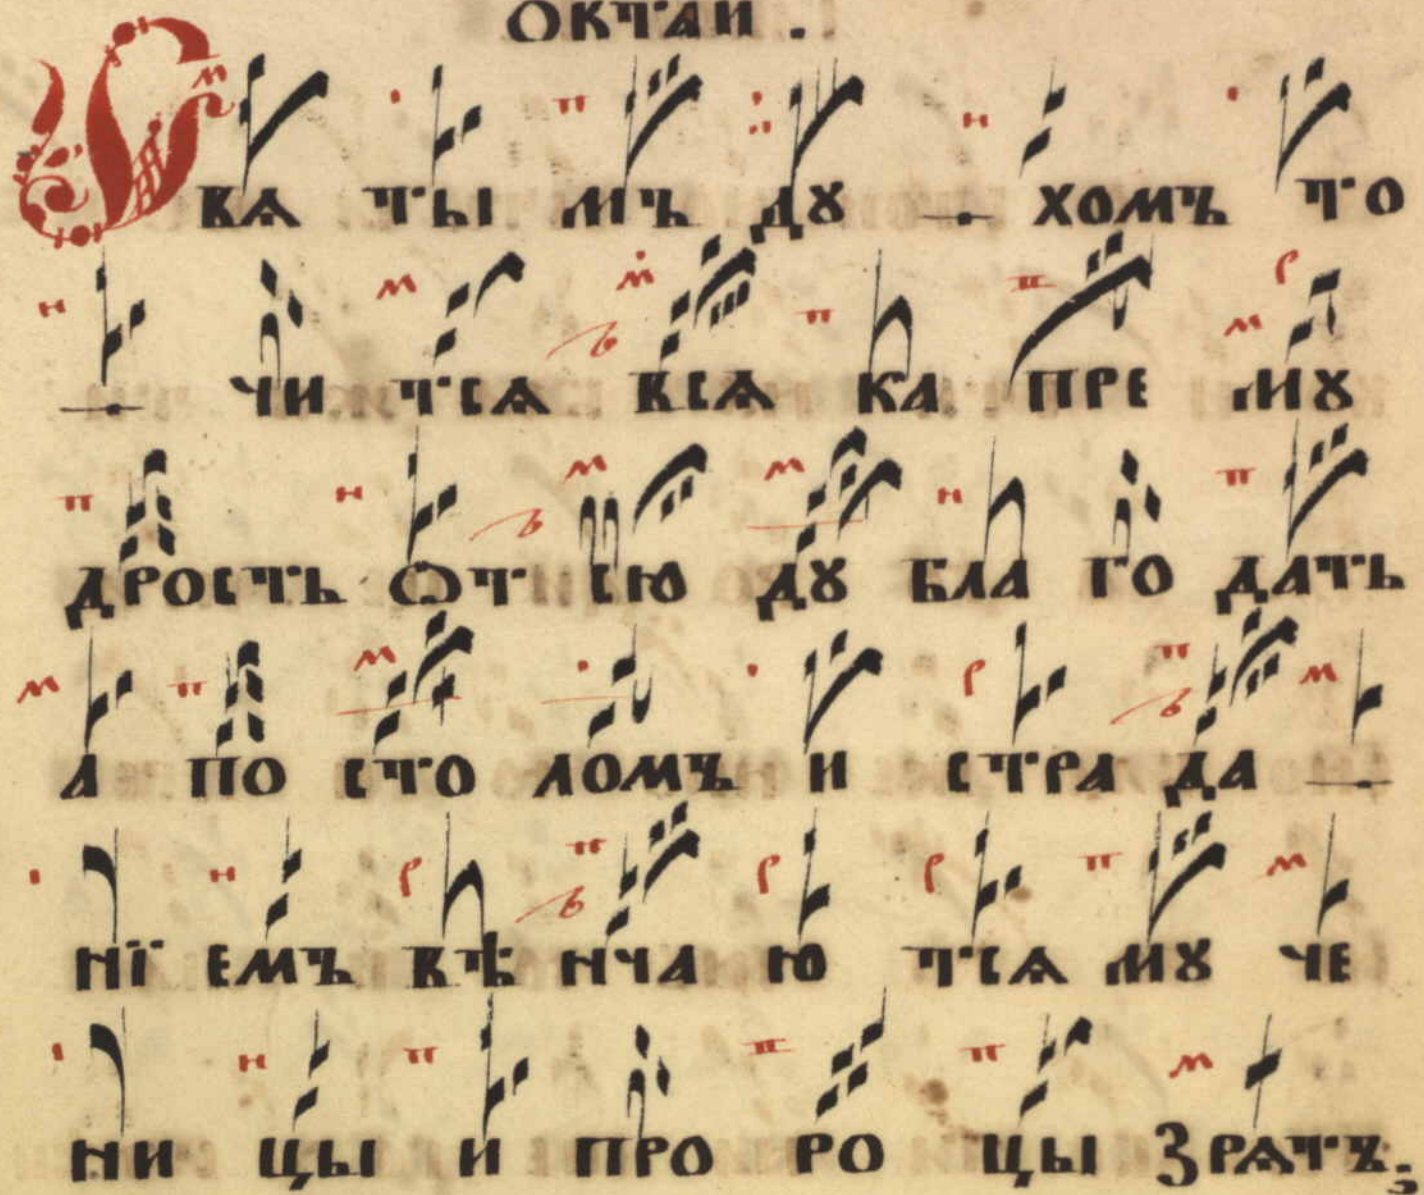 ОКТАИ.
СВЯ ТЫ МЪ ДꙊ — ХОМЪ ТО
— ЧИ ТСЯ ВСЯ КА ПРЕ МꙊ
ДРОСТЬ ѾТ СЮ ДꙊ БЛА ГО ДАТЬ
А ПО СТО ЛОМЪ И СТРА ДА —
НЇ ЕМЪ ВѢ НЧА Ю ТСЯ МꙊ ЧЕ
НИ ЦЫ И ПРО РО ЦЫ ЗРЯТЪ.